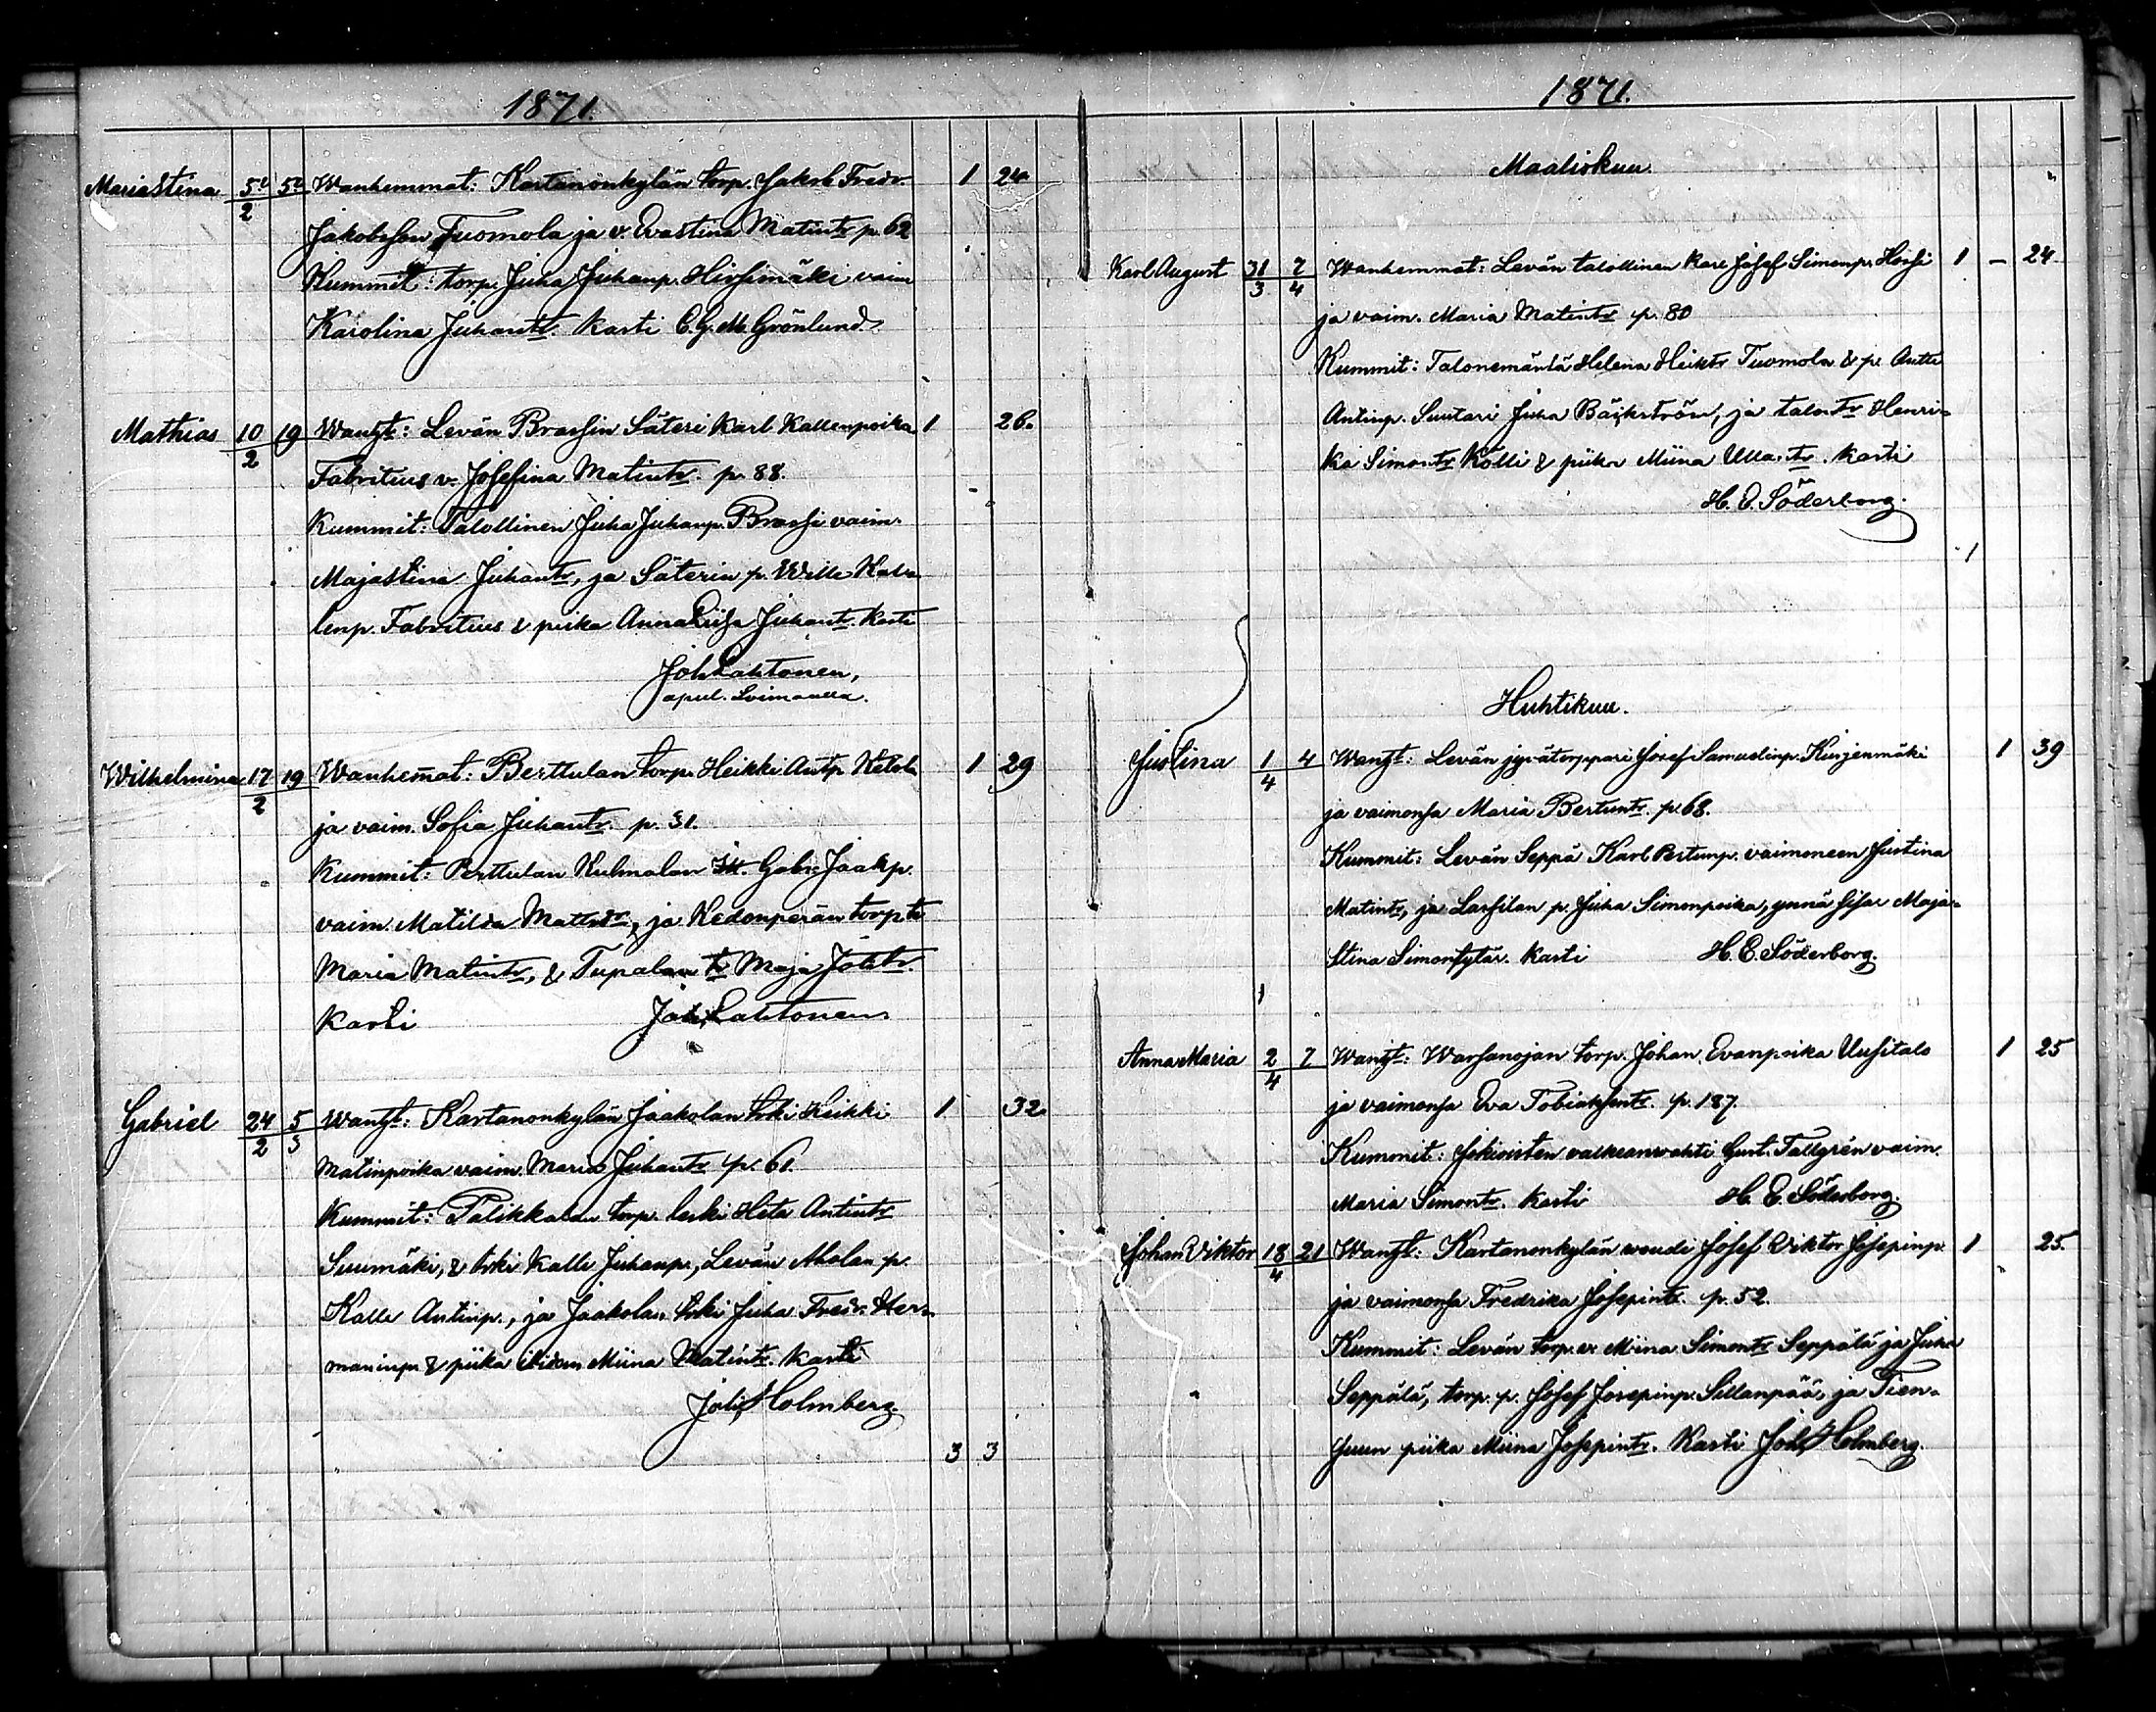 1871.
Mariastina 5e/2 5e Wanhemmat: Kartanonkylän torp. Jakob Fredr. 1 24
Jakobsson Tuomola ja v. Evastina Matintr p. 62
Kummit: torp. Juha Juhanp. Hirsimäki vaim
Karolina Juhantr. Kasti C. G. M. Grönlund
Mathias 10/2 19 Wangt: Levän Brassin Säteri Karl Kallenpoika 1 26.
Fabritius v. Josefina Matintr. p. 88.
Kummit: Talollinen Juha Juhanp. Brassi vaim.
Majastina Juhantr, ja Säterin p. Wille Kal-
lenp. Fabritius & piika Anna Liisa Juhantr. Kasti
Joh. Lahtonen,
apul. Loimaalla.
Wilhelmina 17/2 19 Wanhemat: Berttulan torp. Heikki Antp. 1 29
ja vaim. Sofia Juhantr. p. 31.
Kummit: Perttulan Kulmalan Gabr. Jaakp.
vaim. Matilda Mattstr, ja Kedonperän torp tr
Maria Matintr, & Tupalan tr Maja Johtr.
Kasti Joh. Lahtonen
Gabriel 24/2 5/3 Wangt: Kartanonkylän Jaakolan Heikki 1 32
Matinpoika vaim. Maria Juhantr p. 61.
Kummit: Palikkalan torp. leski Heta Antintr
Suumäki, & Kalle Juhanp., Levän Aholan p.
Kalle Antinp., ja Jaakolan Juha Fredr. Her-
maninp. & piika Miina Matintr. Kasti
Joh. Holmberg.
3 3
1871.
Maaliskuu.
Karl August 31/3 7/4 Wanhemmat: Levän talollinen Karl Josef Simonp. Hossi 1 – 24
ja vaim. Maria Matintr p. 80
Kummit: Talonemäntä Helena Heiktr Tuomola & p. Antti
Antinp. Suutari Juha Bäckström, ja talon tr Henri-
ka Simontr Kölli & piika Miina Ulla. tr. Kasti
H. E. Söderborg.
1
Huhtikuu.
Justina 1/4 4 Wangt: Levän jyvätorppari Josef Samuelinp. Kurjenmäki 1 39
ja vaimonsa Maria Bertuntr. p. 68.
Kummit: Levän Seppä Karl Pertunp. vaimoneen Justina
Matintr, ja Lassilan p. Juha Simonpoika, ynnä sisar Maja-
Stina Simontytär. Kasti H. E. Söderborg.
1
Anna Maria 2/4 7 Wangt: Warsanojan torp. Johan Evanpoika Uusitalo 1 25
ja vaimonsa Eva Tobiaksentr. p. 187.
Kummit: Jokioisten valkeanvahti Gust. Tallgrén vaim.
Maria Simontr. Kasti H. E. Söderborg.
Johan Viktor 18/4 21 Wangt: Kartanonkylän voudi Josef Viktor Josepinp. 1 25.
ja vaimonsa Fredrika Josepintr. p. 52.
Kummit: Levän torp. v. Miina Simontr Seppälä ja Juha
Seppälä, torp. p. Josef Josepinp. Sillanpää, ja Tien-
suun piika Miina Josepintr. Kasti Joh. Holmberg.